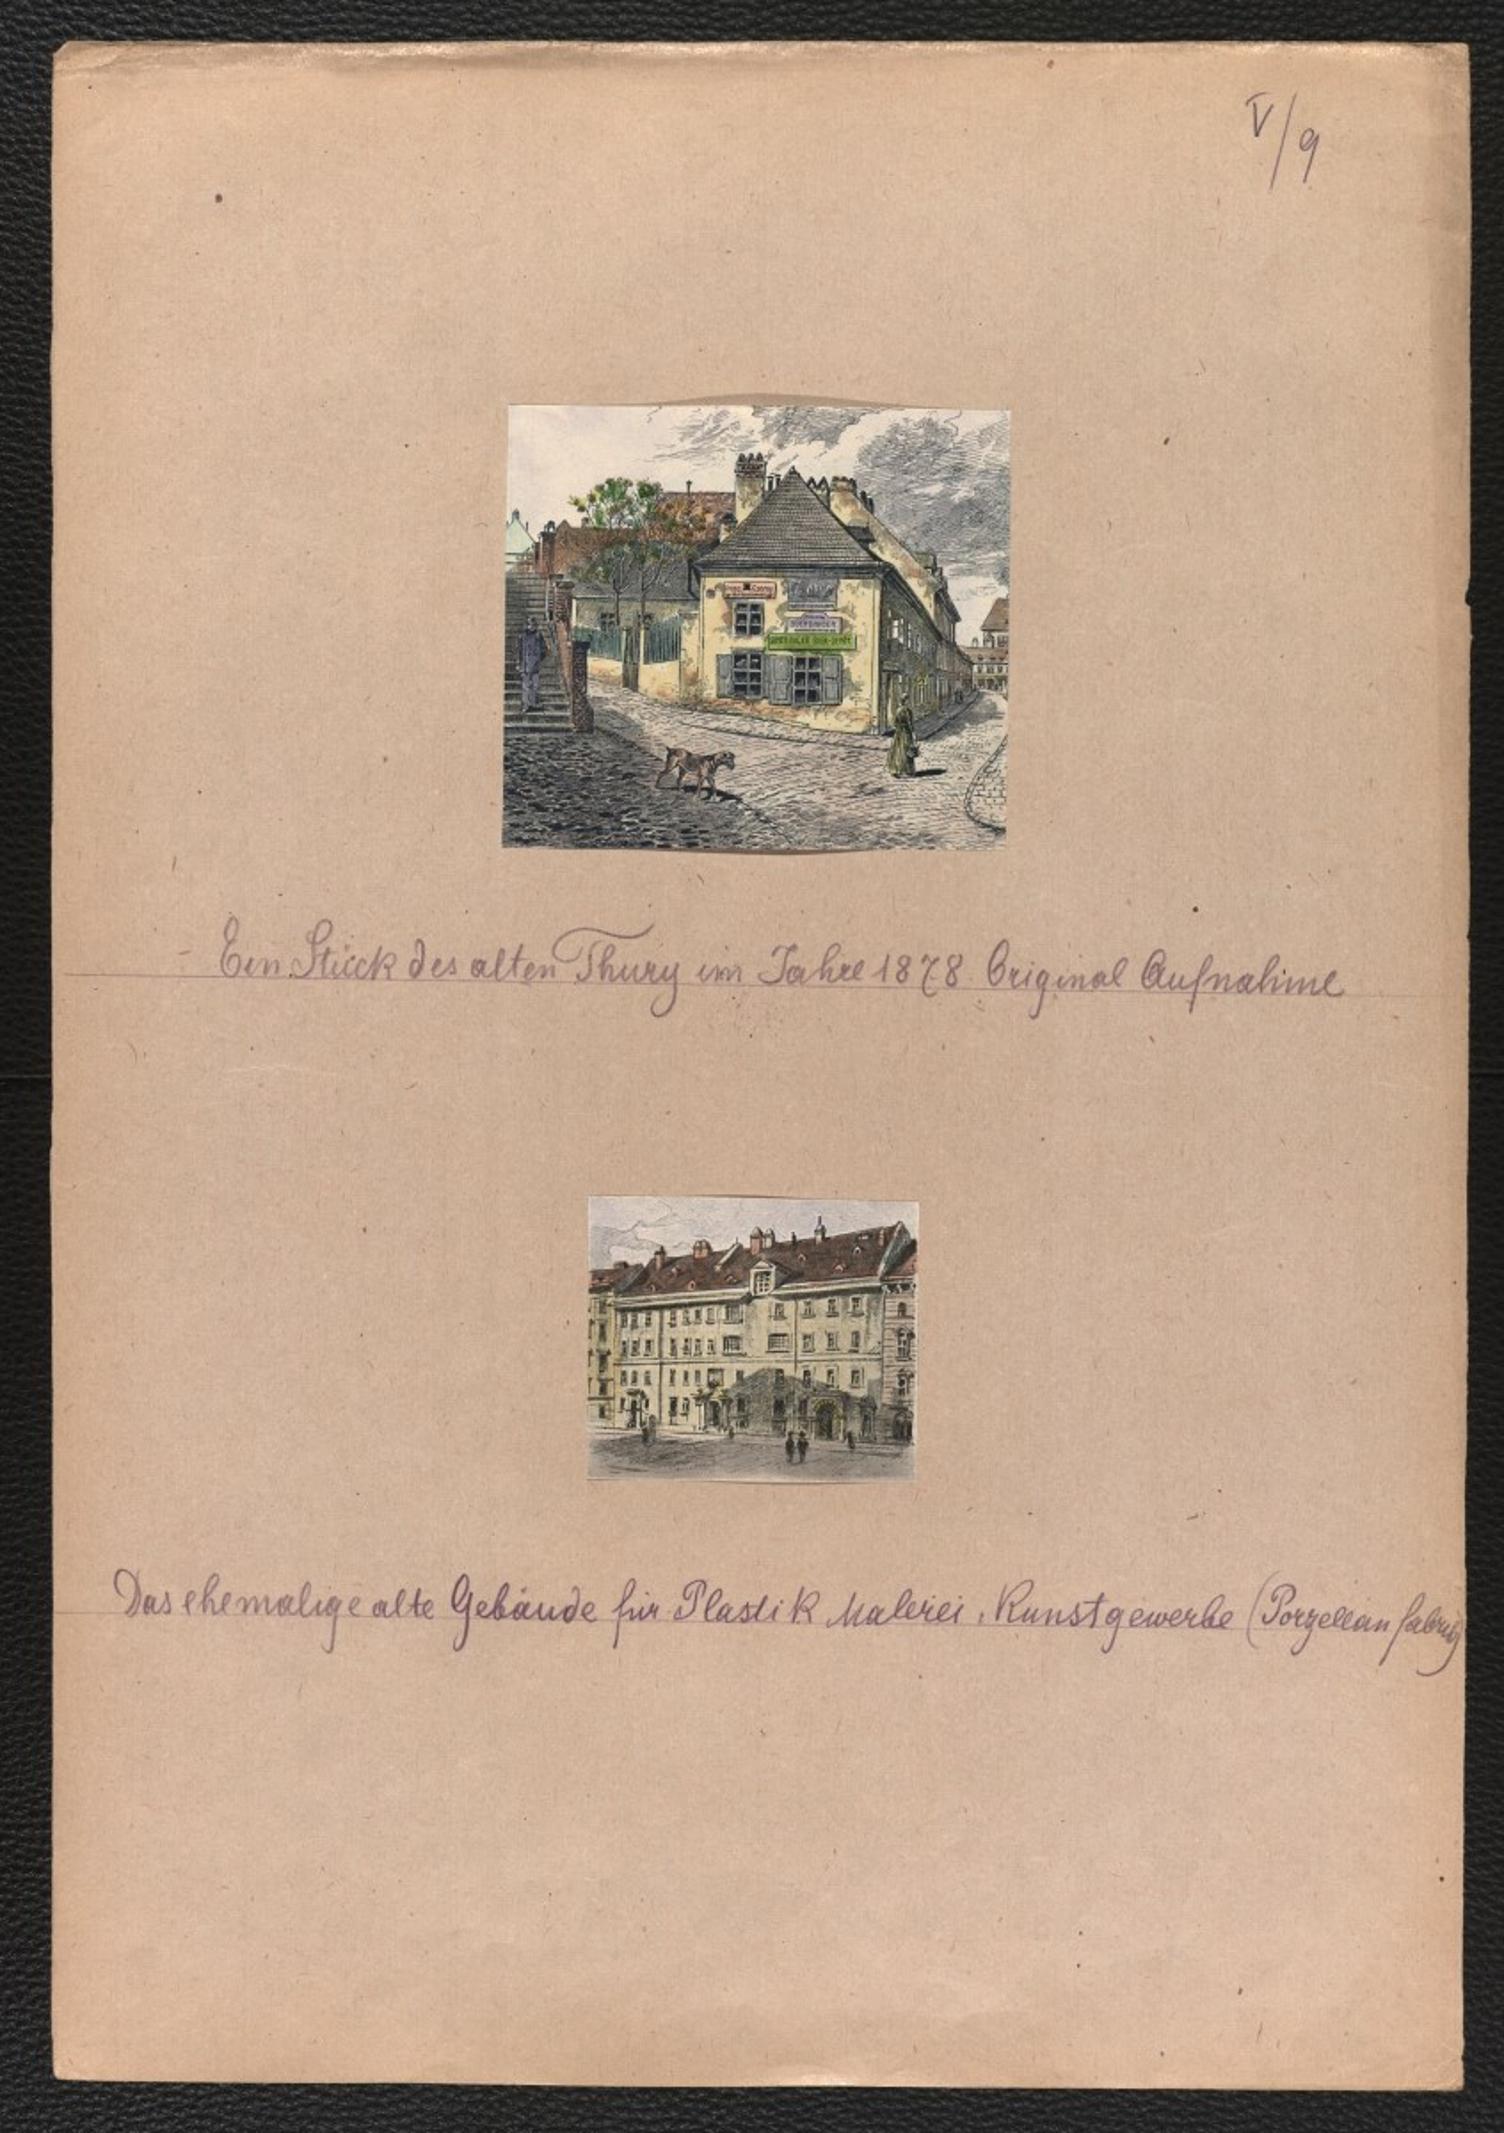 V/9
- Ein Stück des alten Thury im Jahre 1878. Original Aufnahme
Das ehemalige alte Gebäude für Plastik Malerei, Kunstgewerbe (Porzellan fabrik)